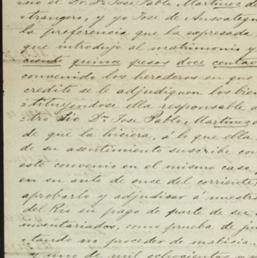 mo el Sr. Dr. José Pablo Martinez del
strangero, y yo José de Ansoategui
la preferencia que la espresada
que introdujo al matrimonio y
ciento quince pesos doce centavos
convenido los herederos en que
credito se le adjudiquen los bienes
stituyendose ella responsable
Sr. Dn. Jose Pablo Martinez
de que la hiciera, á lo que ella
de su asentimiento suscribe con
este convenio en el mismo caso
en su auto de once del corriente
aprobarlo y adjudicar á nuestra
del Rio en pago de parte de su
inventariados, como prueba de
tando un proceder de malicia
y uno de mil ochocientos